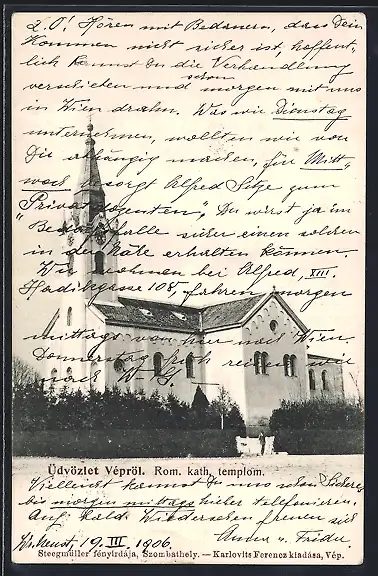 L. O! Hören mit Bedauern, dass Dein
Kommen nicht sicher ist, hoffent-
lich kannst Du die Verhandlung
schon
verschieben und morgen mit uns
in Wien drahn. Was wir Dienstag
unternehmen, wollten wir von
Dir abhängig machen, für Mitt-
woch besorgt Alfred Sitze zum
"Privatdozenten", Du wirst ja im
Bedarfsfalle sicher einen solchen
in der Nähe erhalten können.
Wir wohnen bei Alfred, XIII.
Hadikgasse 108, fahren morgen
mittags von hier nach Wien
Donnerstag früh reisen wir
nach
Üdvözlet Vépröl. Rom. kath. templom.
Vielleicht kannst Du uns schon
bis morgen mittags hieher telefonieren.
Auf bald. Wiedersehen freuen sich
19. III. 1906. u. Frida
Steegmüller fényirdája, Szombathely. — Karlovits Ferencz kiadása, Vép.